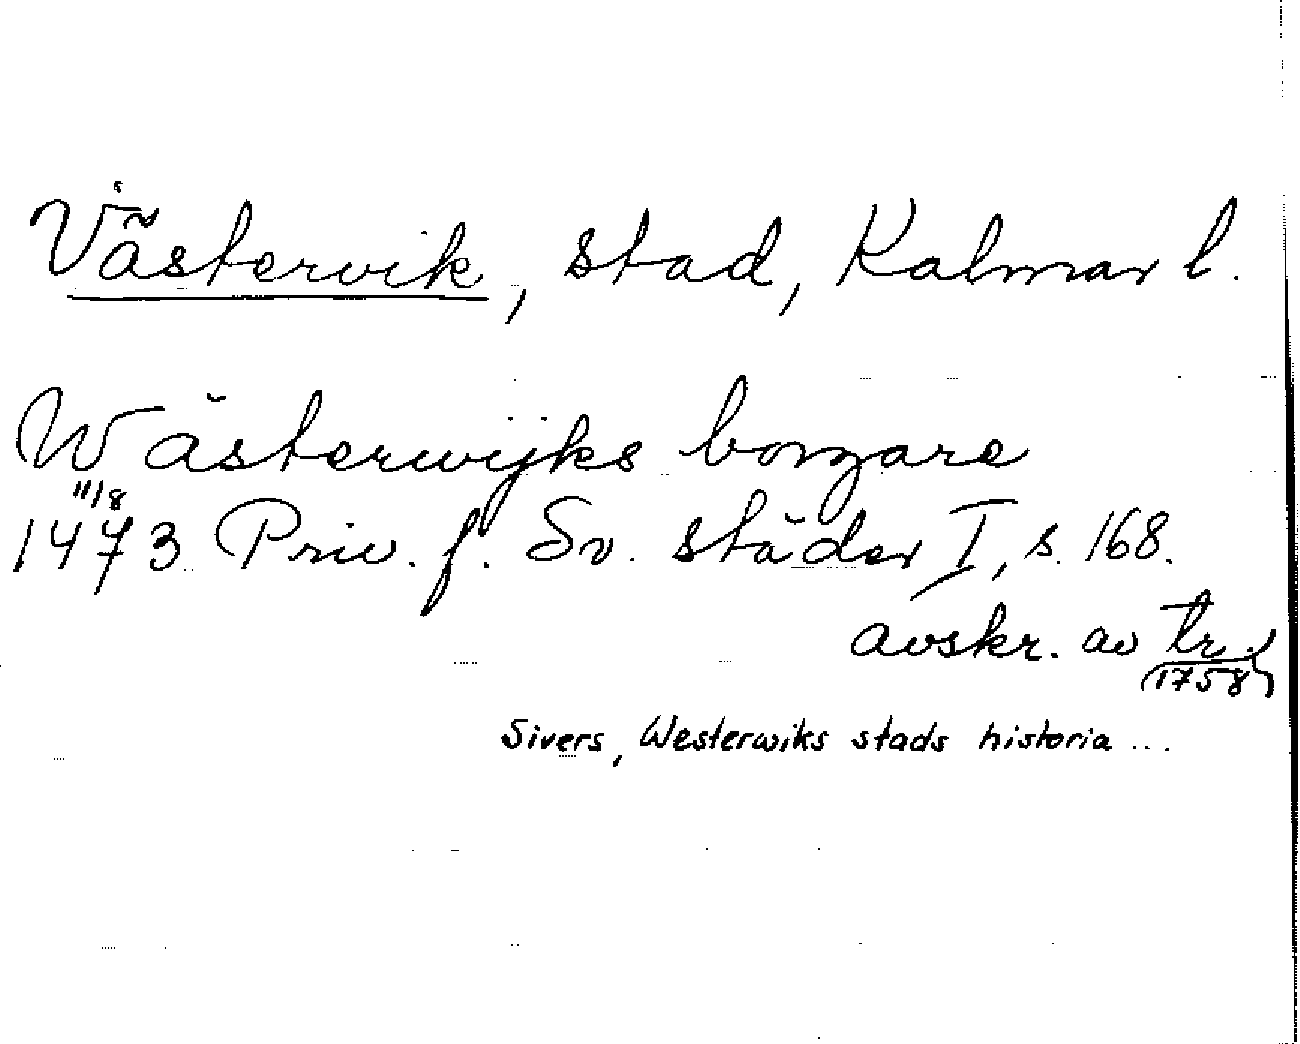 Västervik, stad, Kalmar l.
Wästerwijks borgare
11/8
1473 Priv. f. Sv. städer I, s. 168.
avskr. av tr.
(1758)
Sivers, Westerwiks stads historia ...